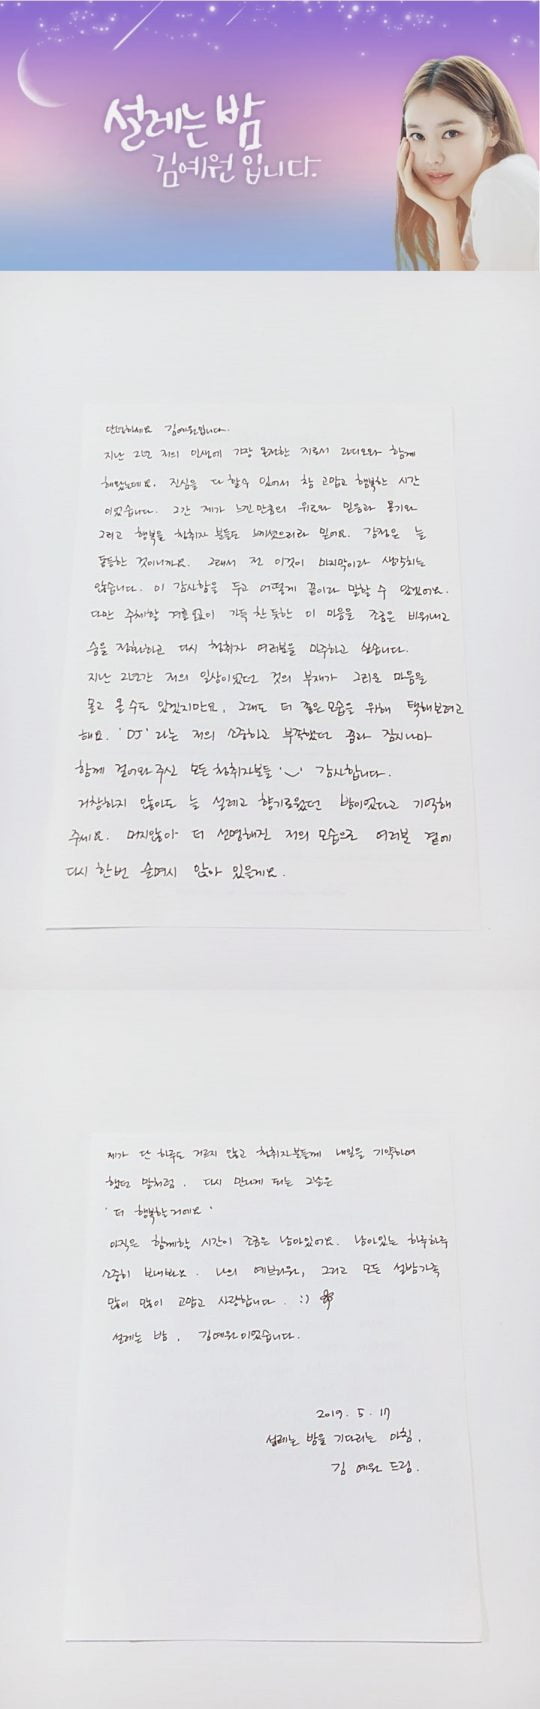 설레는 밤
김예원입니다.
안녕하세요 김예원입니다.
지난 2년 저의 인생에 가장 온전한 지금서 라디오와 함께
해왔는데요. 진심을 다 할 수 있어서 참 고맙고 행복한 시간
이었습니다. 그간 제가 느낀 만큼의 위로와 믿음과 용기와
그리고 행복을 청취자 분들도 느끼셨으리라 믿어요. 감정은 늘
동등한 것이니까요. 그래서 전 이것이 마지막이라 생각치는
않습니다. 이 감사함을 두고 어떻게 끝이라 말할 수 있겠어요.
다만 주체할 겨를 없이 가득 찬 듯한 이 마음을 조금은 비워내고
숨을 정화하고 다시 청취자 여러분을 마주하고 싶습니다.
지난 2년간 저의 일상이었던 것의 부재가 그리운 마음을
몰고 올 수도 있겠지만요, 그래도 더 좋은 모습을 위해 택해보려고
해요. 'DJ' 라는 저의 소중하고 부푼했던 꿈과 잠시나마
함께 걸어와 주신 모든 청취자분들 '◡' 감사합니다.
거창하지 않아도 늘 설레고 향기로웠던 밤이었다고 기억해
주세요. 머지않아 더 선명해진 저의 모습으로 여러분 곁에
다시 한번 슬며시 앉아 있을게요.
제가 단 하루도 거르지 않고 청취자분들께 내일을 기약하며
했던 말처럼, 다시 만나게 되는 그날은
' 더 행복할 거예요 '
아직은 함께할 시간이 조금은 남아있어요. 남아있는 하루하루
소중히 보내봐요. 나의 예브리워, 그리고 모든 설밤가족
많이 많이 고맙고 사랑합니다. :)
설레는 밤, 김예원이었습니다.
2019. 5. 17
설레는 밤을 기다리는 아침,
김 예원 드림.